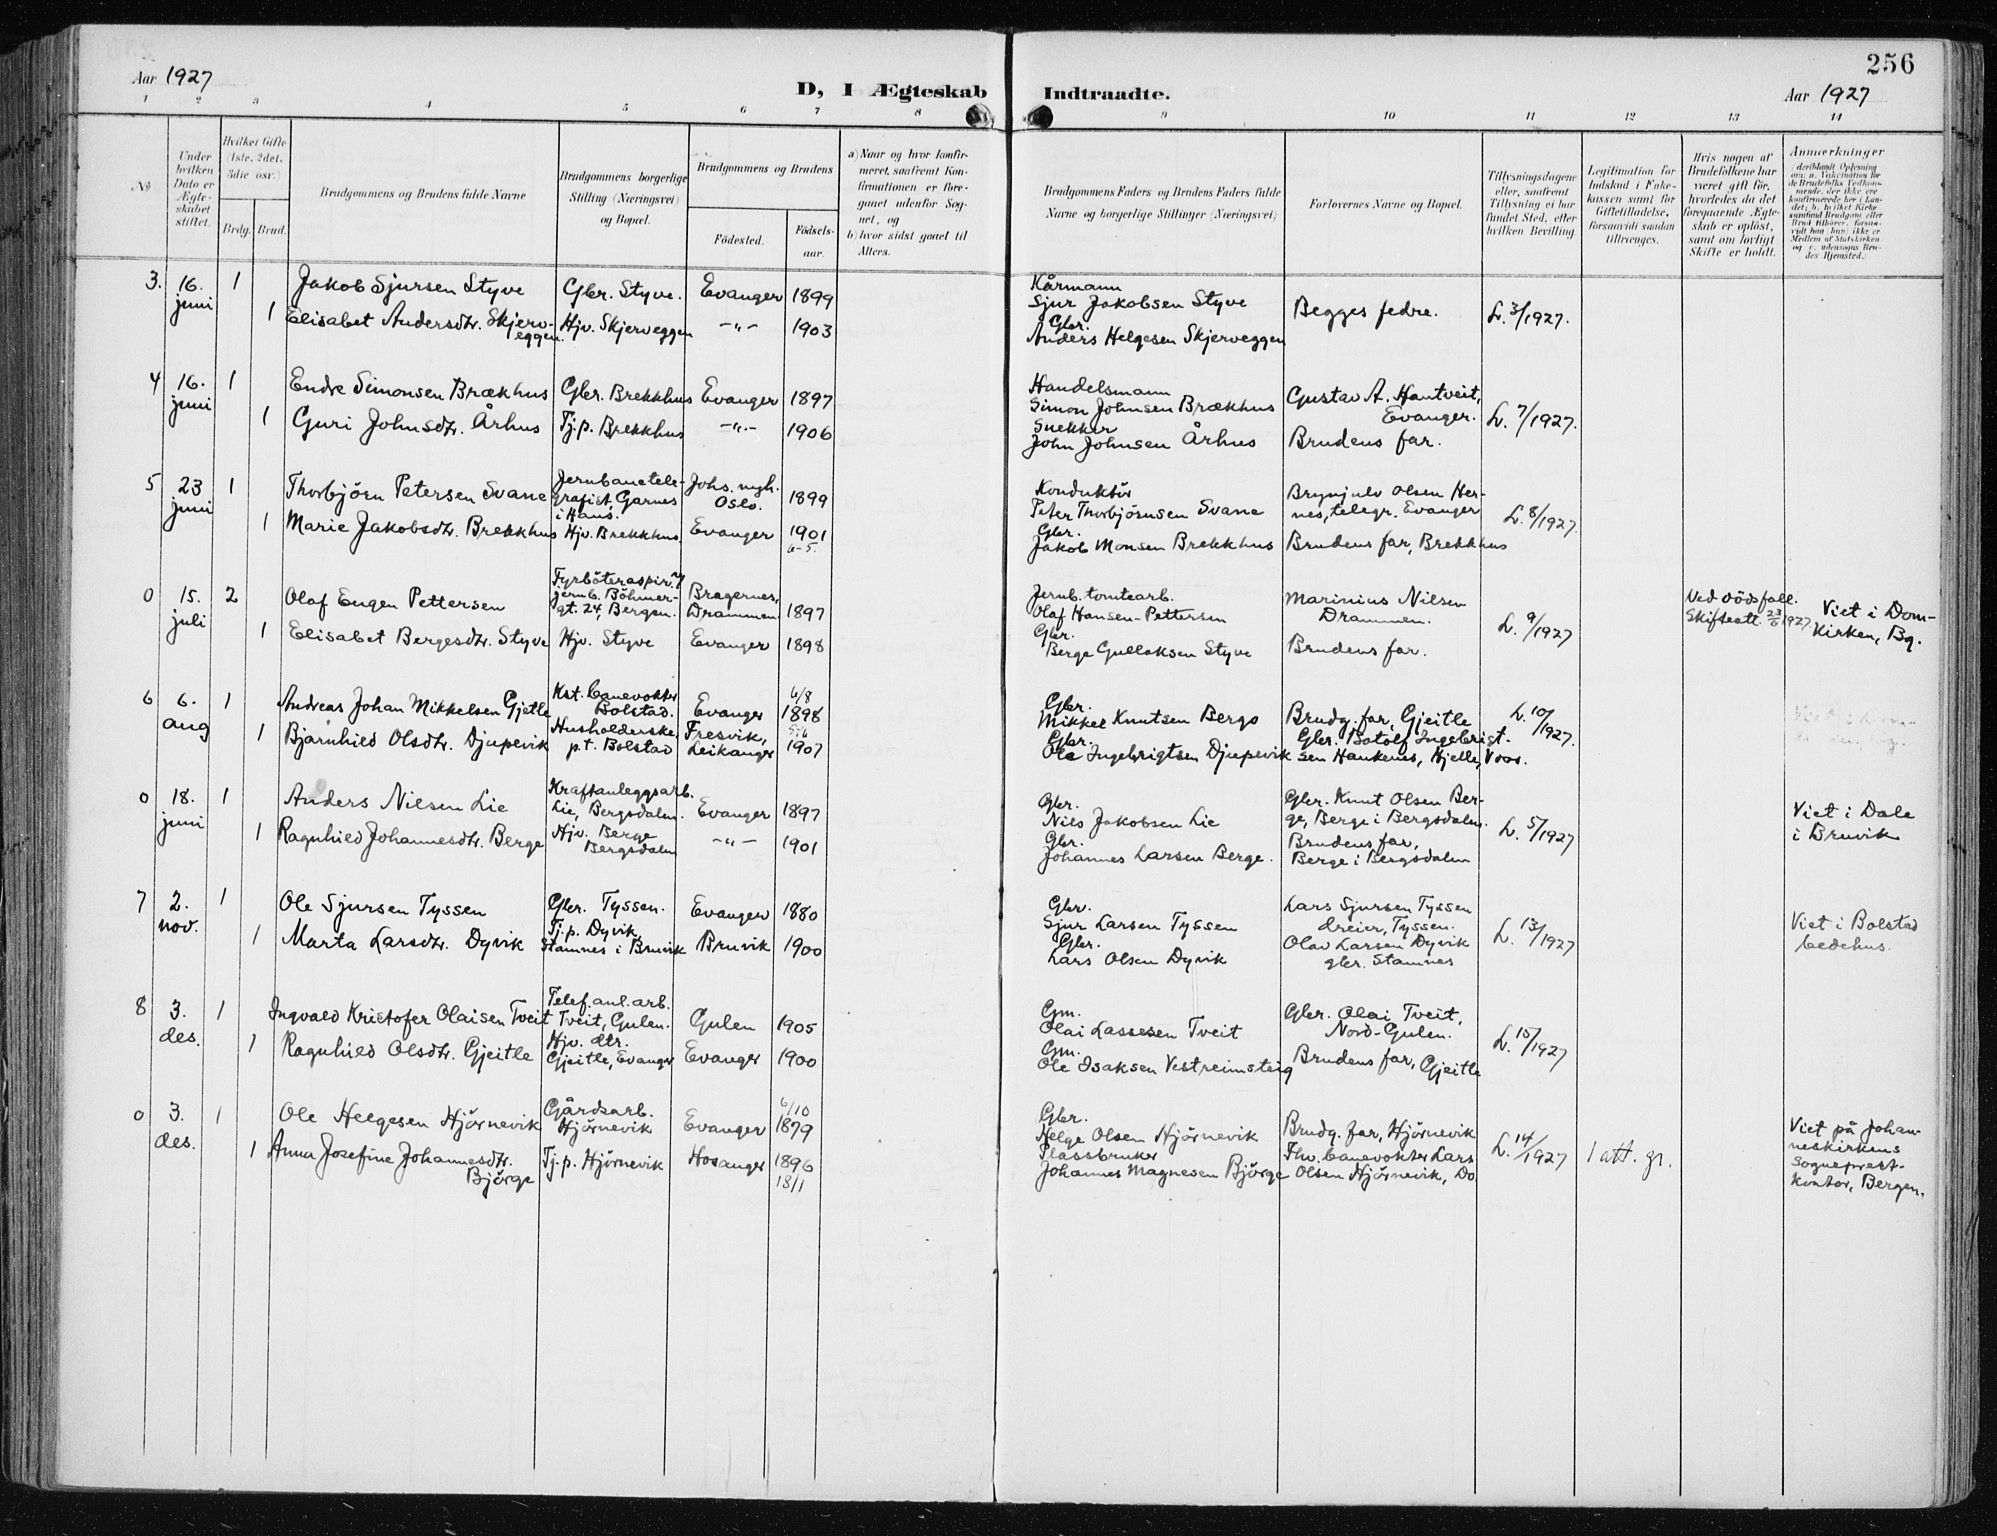 256
Aar 1927
D, I Ægteskab Indtraadte.
Aar 1927
1 2 3 4 5 6 7 8 9 10 11 12 13 14
No
Under hvilken Dato er Ægteskabet stiftet.
Hvilket Gifte (1ste, 2det, 3die osv.)
Brdg. Brud.
Brudgommens og Brudens fulde Navne
Brudgommens borgerlige Stilling (Næringsvei) og Bopæl.
Brudgommens og Brudens
Födested.
Födsels-
aar.
a) Naar og hvor konfir-
meret, saafremt Kon-
firmationen er fore-
gaaet udenfor Sog-
net, og
b) hvor sidst gaaet til
Alters.
Brudgommens Faders og Brudens Faders fulde
Navne og borgerlige Stillinger (Næringsvei)
Forlovernes Navne og Bopæl.
Tillysningsdagene
eller, saafremt
Tillysning ei har
fundet Sted, efter
hvilken Bevilling.
Legitimation for
Indskud i Enke-
kassen samt for
Giftetilladelse,
forsaavidt saadan
tiltrænges.
Hvis nogen af
Brudefolkene har
været gift før,
hvorledes da det
foregaaende Ægte-
skab er oplöst,
samt om lovligt
Skifte er holdt.
Anmærkninger
3. 16. juni 1 Jakob Sjursen Styve Gbr. Styve. Evanger 1899
1 Elisabet Andersdtr. Skjerv-
eggen. Hjv. Skjerveggen -"- 1903
Kårmann
Sjur Jakobsen Styve
Gbr.
Anders Helgesen Skjerveggen
Begges fedre.
L. 3/1927.
4 16. juni 1 Endre Simonsen Brækhus Gbr. Brekkhus Evanger 1897
1 Guri Johnsdtr. Århus Tj.p. Brekkhus -"- 1906
Handelsmann
Simon Johnsen Brækhus
Snekker
John Johnsen Århus
Gustav A. Hantveit,
Evanger.
Brudens far.
L. 7/1927.
5 23 juni 1 Thorbjörn Petersen Svane
Jernbanetele-
grafist, Garnes
i Haus.
Johs. mgh.
Oslo. 1899
1 Marie Jakobsdtr. Brekkhus Hjv. Brekkhus. Evanger 1901
6-5.
Konduktör
Peter Thorbjörnsen Svane
Gbr.
Jakob Monsen Brekkhus
Brynjulv Olsen Her-
nes, telegr. Evanger
Brudens far, Brekkhus
L. 8/1927
0 15. juli 2 Olaf Eugen Pettersen
Fyrböteraspir. v/
jernb. Böhmer-
gt. 24, Bergen.
Bragernes,
Drammen 1897
1 Elisabet Bergesdtr. Styve Hjv. Styve Evanger 1898
Jernb. tomtearb.
Olaf Hansen-Pettersen
Gbr.
Berge Gullaksen Styve
Marinius Nilsen
Drammen.
Brudens far.
L. 9/1927
Ved dödsfall.
Skifteatt. 23/6 1927.
Viet i Dom-
kirken, Bg.
6 6. aug 1 Andreas Johan Mikkelsen Gjetle
Kst. banevokter
Bolstad. Evanger
6/8
1898
1 Bjarnhild Olsdtr. Djupevik
Husholderske,
p.t. Bolstad
Fresvik,
Leikanger
1907
Gbr.
Mikkel Knutsen Bergo
Gbr.
Ole Ingebrigtsen Djupevik
Brudg. far, Gjeitle
Gbr. Botolf Ingebrigt-
sen Haukenes, Hjelle, Voss.
L. 10/1927.
0 18. juni 1 Anders Nilsen Lie
Kraftanleggsarb.
Lie, Bergsdalen. Evanger 1897
1 Ragnhild Johannesdtr. Berge
Hjv. Berge
Bergsdalen -"- 1901
Gbr.
Nils Jakobsen Lie
Gbr.
Johannes Larsen Berge.
Gbr. Knut Olsen Ber-
ge, Berge i Bergsdalen.
Brudens far,
Berge i Bergsdalen
L. 5/1927
Viet i Dale
i Bruvik
7 2. nov. 1 Ole Sjursen Tyssen Gbr. Tyssen. Evanger 1880
1 Marta Larsdtr. Dyvik
Tj.p. Dyvik,
Stamnes i Bruvik Bruvik 1900
Gbr.
Sjur Larsen Tyssen
Gbr.
Lars Olsen Dyvik
Lars Sjursen Tyssen
dreier, Tyssen.
Olav Larsen Dyvik
gbr. Stamnes
L. 13/1927
Viet i Bolstad
bedehus.
8 3. des. 1 Ingvald Kristofer Olaisen Tveit
Telef.anl.arb.
Tveit, Gulen. Gulen 1905
1 Ragnhild Olsdtr. Gjeitle
Hjv. dtr.
Gjeitle, Evanger Evanger 1900
Gm.
Olai Lassesen Tveit
Gm.
Ole Isaksen Vestreimsteig
Gbr. Olai Tveit,
Nord-Gulen.
Brudens far, Gjeitle
L. 15/1927
0 3. des. 1 Ole Helgesen Hjörnevik
Gårdsarb.
Hjörnevik Evanger
6/10
1879
1 Anna Josefine Johannesdtr.
Björge Tj.p. Hjörnevik Hosanger 1896
18/1
Gbr.
Helge Olsen Hjörnevik
Plassbruker
Johannes Magnesen Björge
Brudg. far, Hjörnevik
Fhv. banevokter Lars
Olsen Hjörnevik, Do.
L. 14/1927
1 att. gr.
Viet på Johan-
neskirkens
sogneprest-
kontor, Bergen.